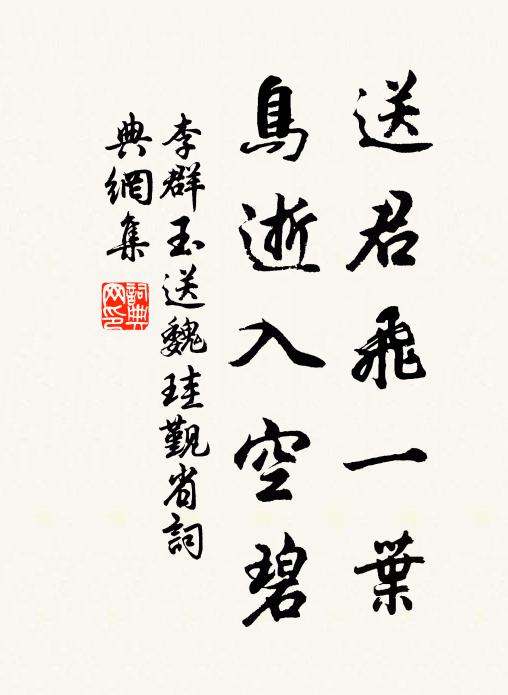 送君飛一葉
鳥逝入空碧
李群玉送魏珪覲省詞
典網集
詞典
网印